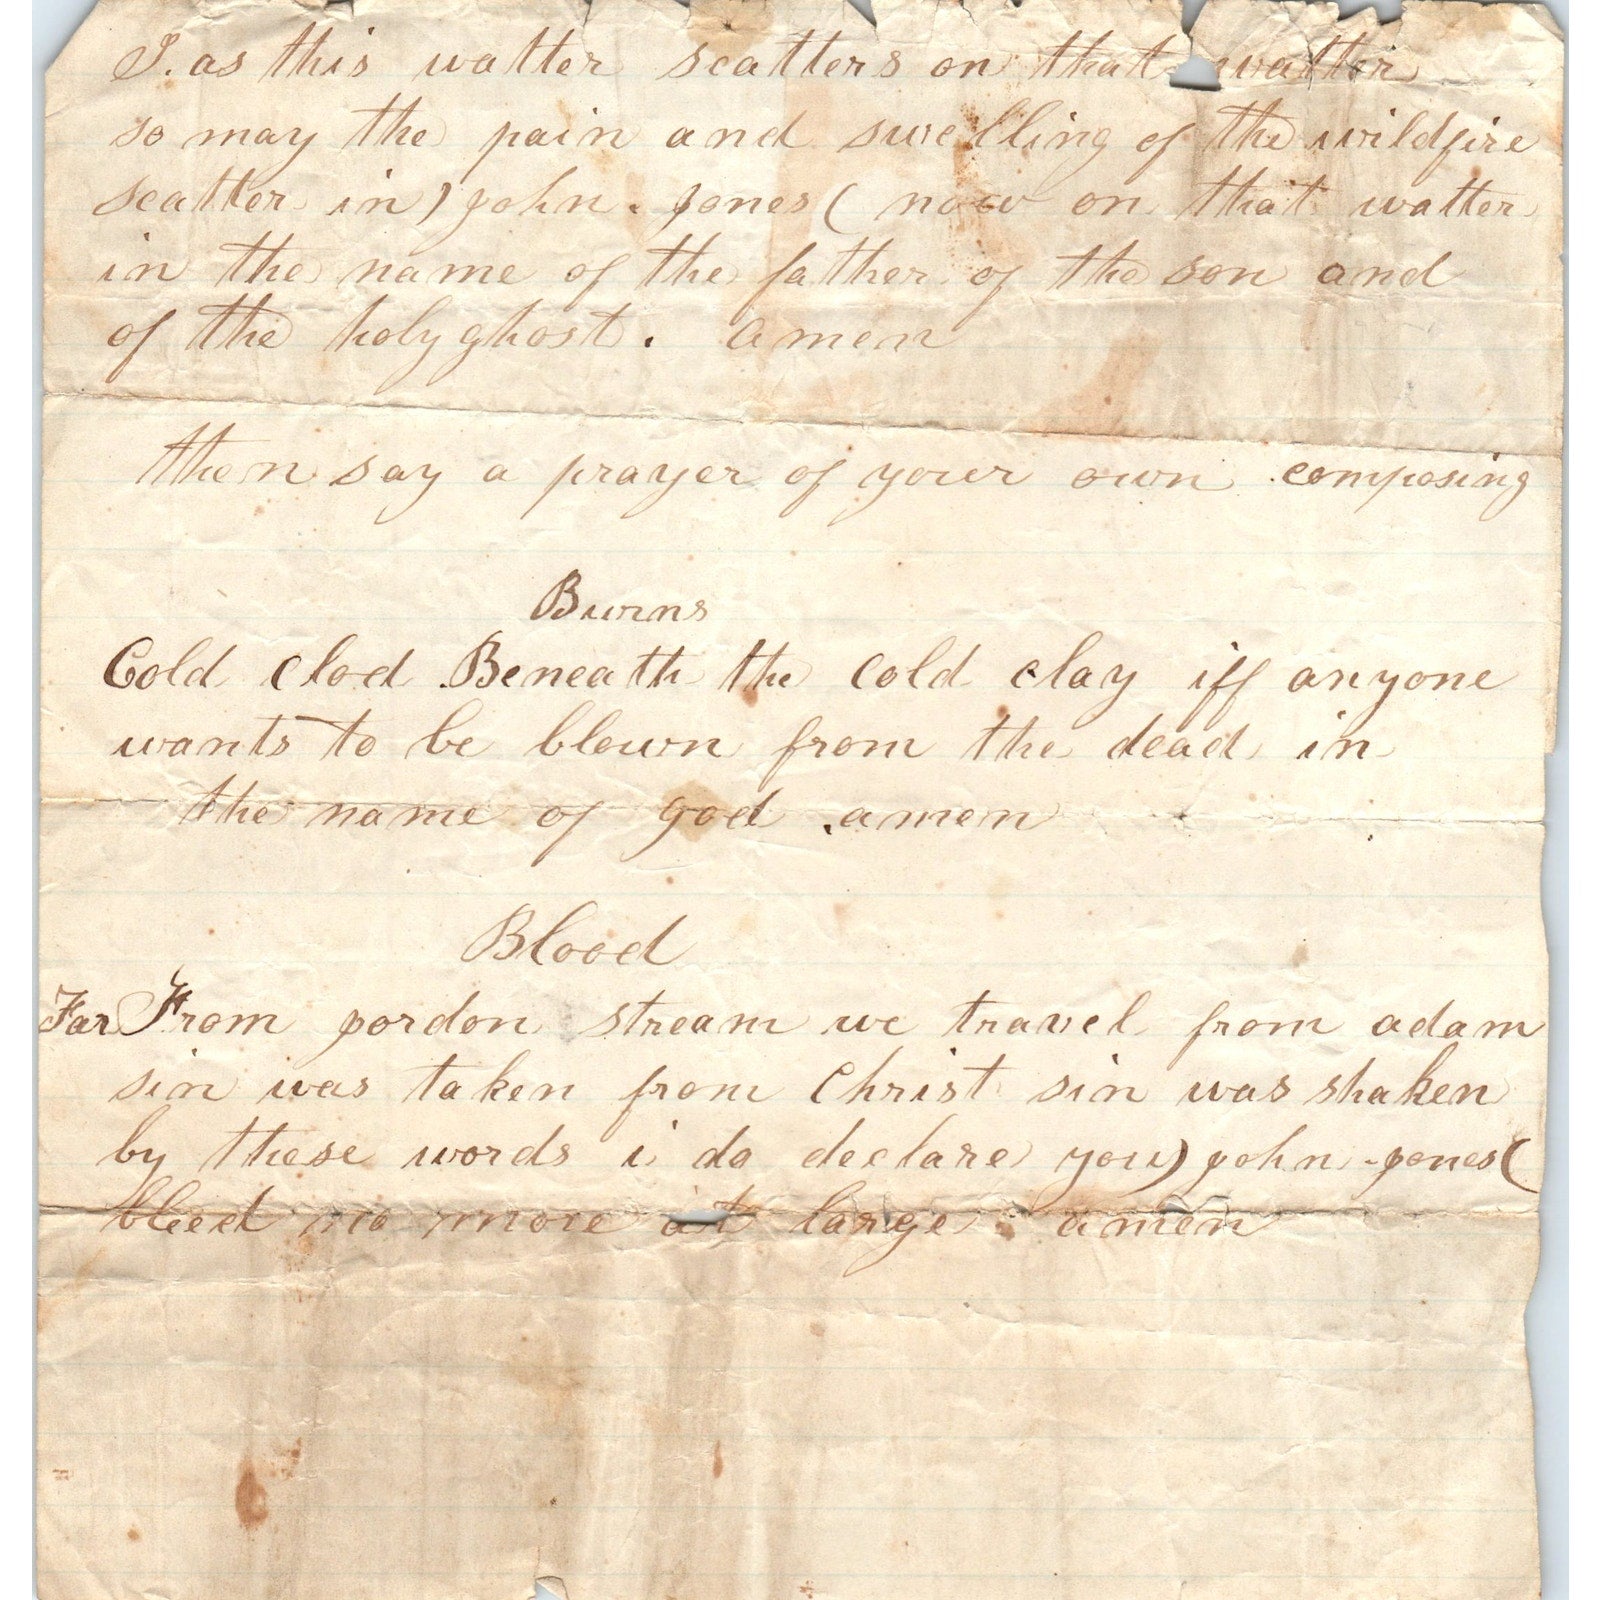 I. as this watter scatters on that watter
so may the pain and swelling of the wildfire
scatter in) john. jones ( now on that watter
in the name of the father of the son and
of the holy ghost. amen
then say a prayer of your own composing
Burns
Cold clod Beneath the cold clay iff anyone
wants to be blown from the dead in
the name of god .amen
Blood
Far From jordon stream we travel from adam
sin was taken from Christ sin was shaken
by these words i do declare you) john - jones (
bleed no more at large. amen